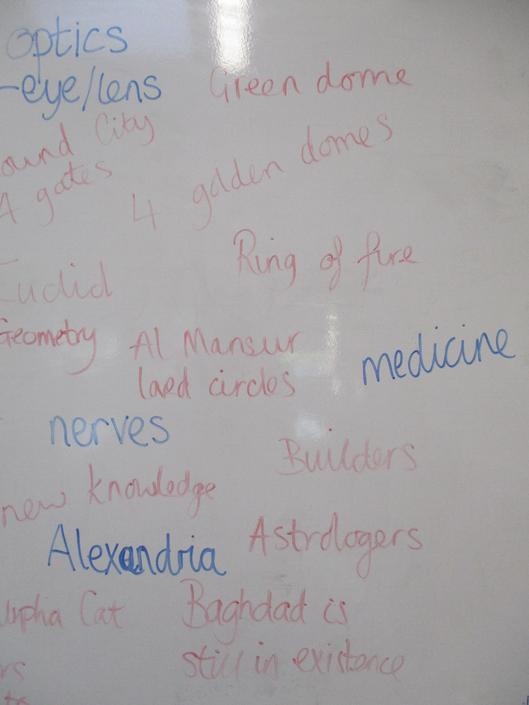 optics
-eye/lens
Green dome
ound City
4 gates
4 golden domes
Ring of fire
Euclid
Geometry
Al Mansur
laed circles
medicine
nerves
Builders
new knowledge
Alexandria
Astrologers
Cat
Baghdad is
still in existence
rs